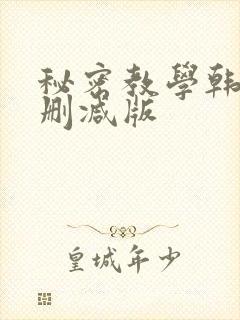 秘密教學韩
删减版
皇城年少